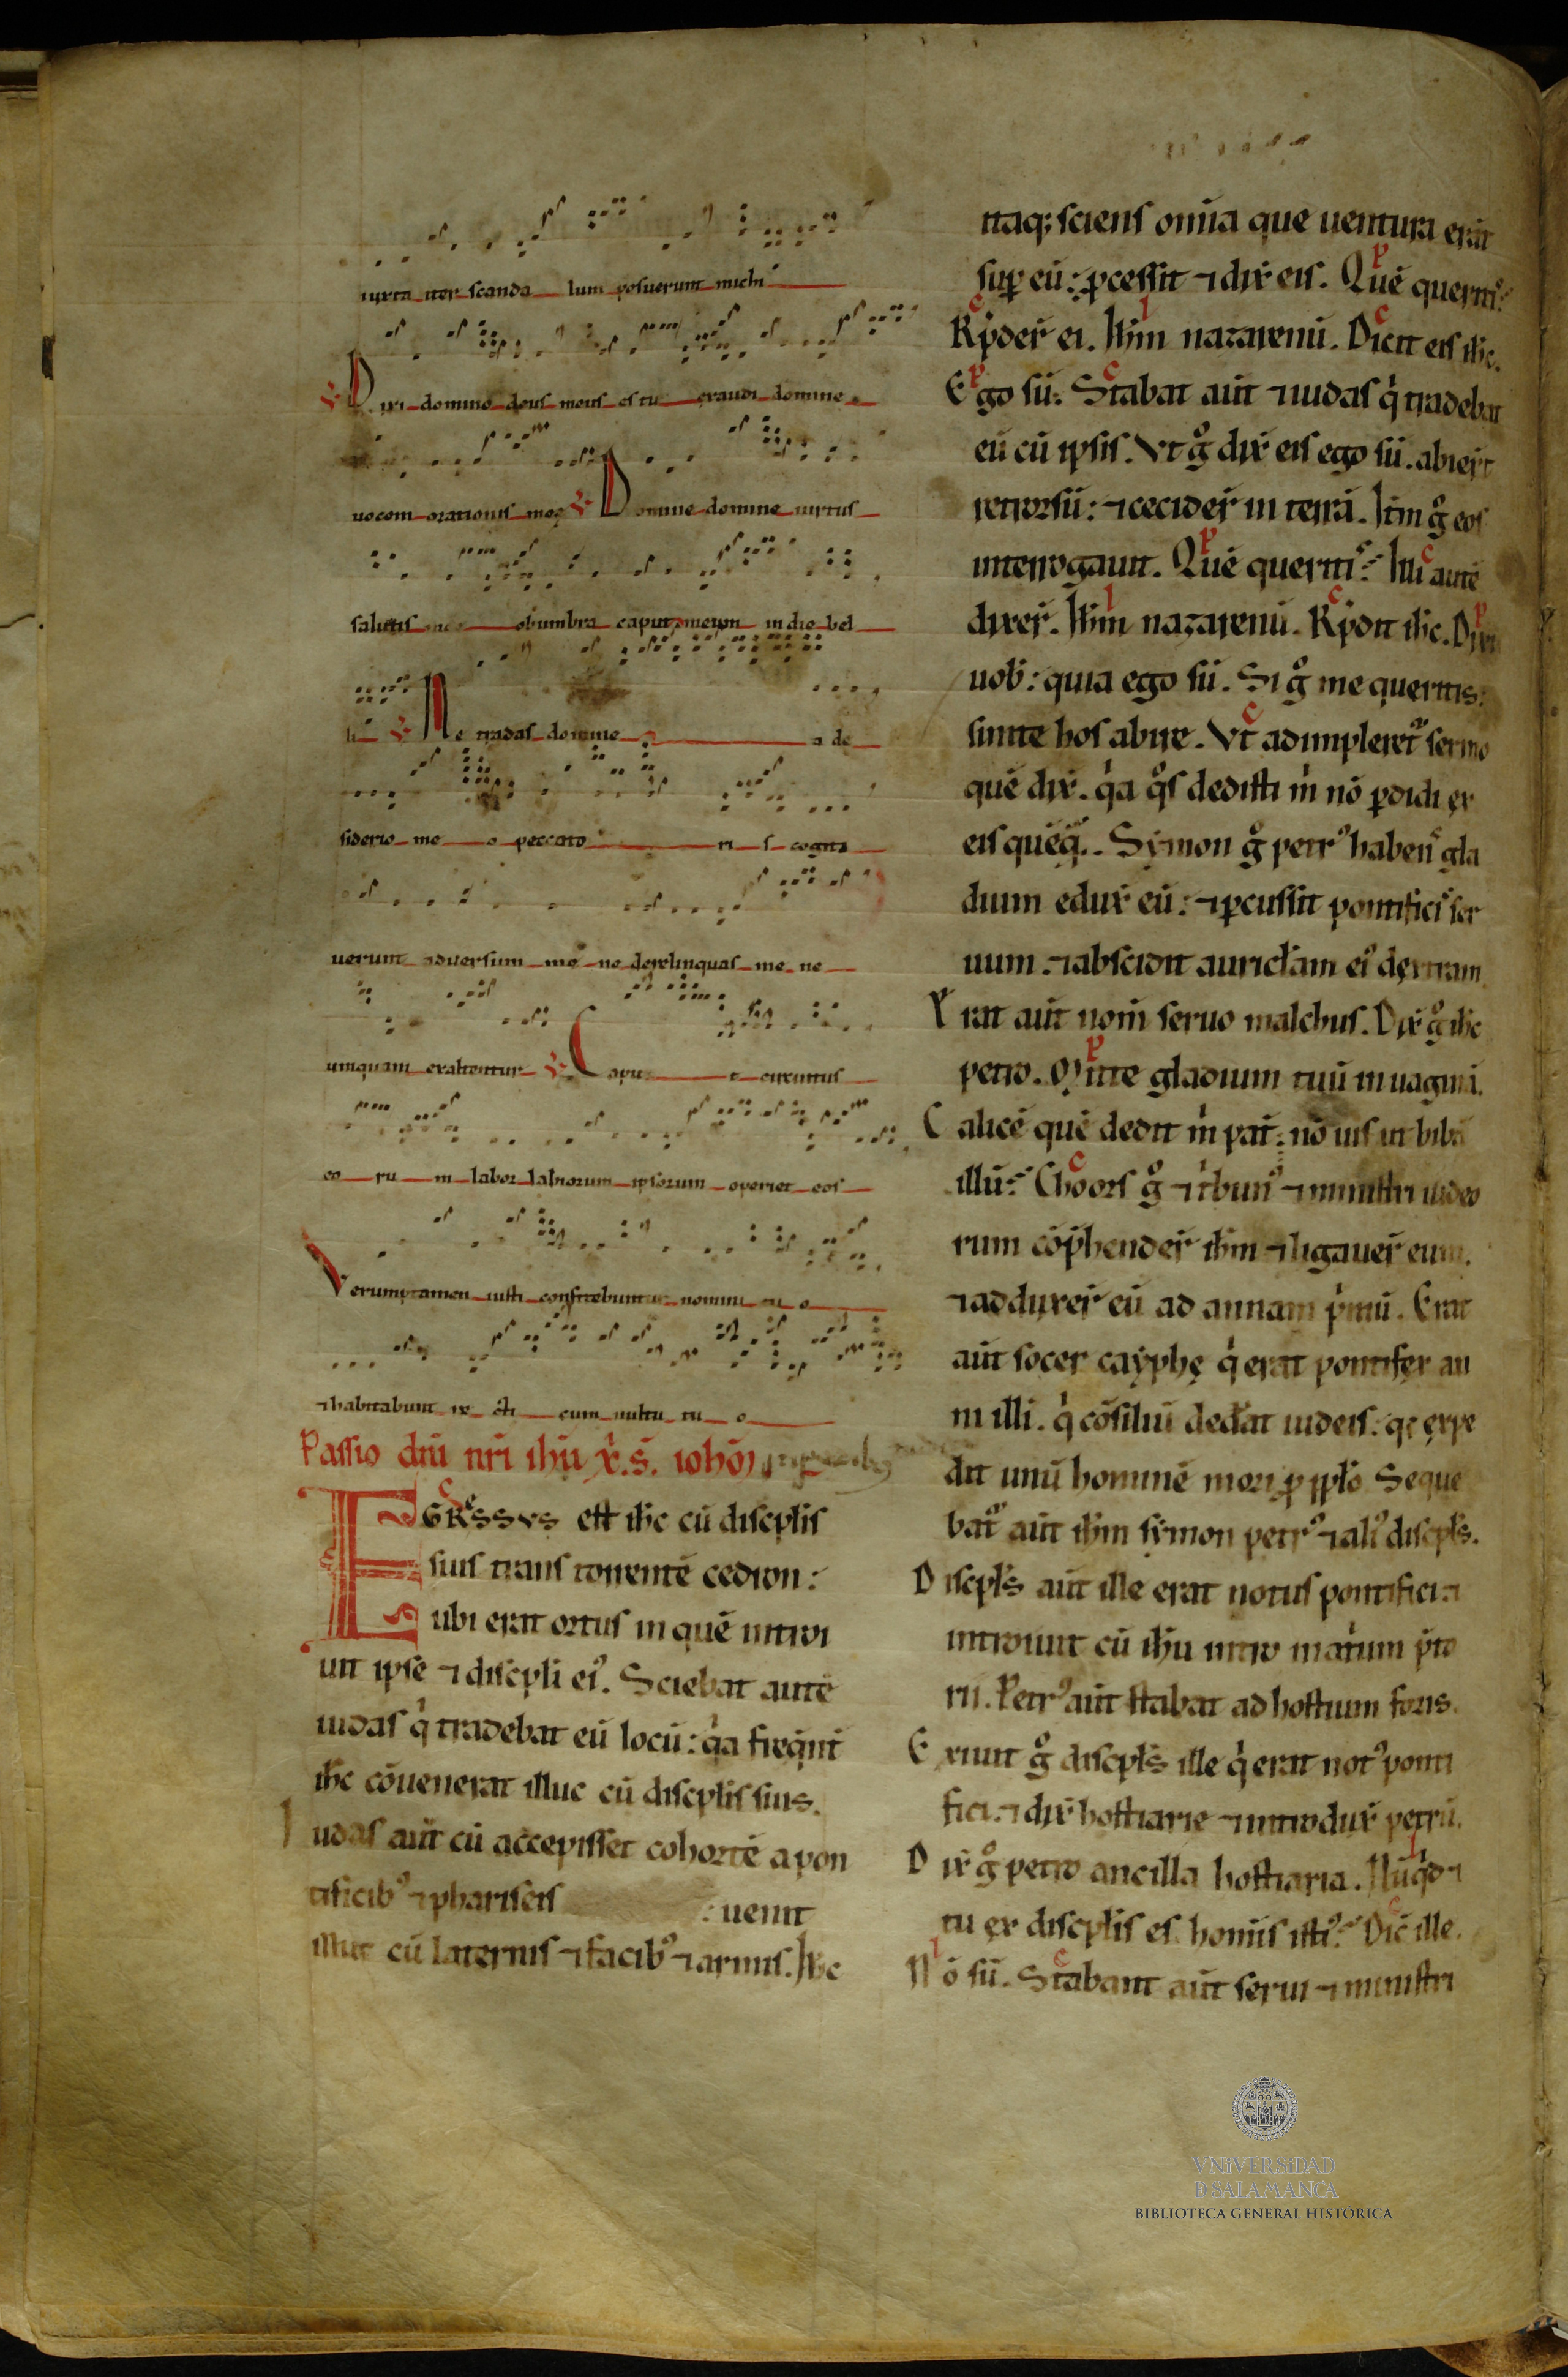 iuxta iter scanda lum posuerunt michi
℣ Dixi domino deus meus es tu exaudi domine
uocem orationis meę ℣ Domine domine uirtus
salutis obumbra caput meum in die bel
li ℣ Ne tradas domine a de
siderio me o peccato ri s cogita
uerunt aduersum me ne derelinquas me ne
umquam exaltentur ℣ Capu t circuitus
eo ru m labor labiorum ipsorum operiet eos
Verumptamen iusti confitebuntur nomini tu o
⁊ habitabunt re cti cum uultu tu o
Passio dn̄i nr̄i ih̄u x̄. s̄. ioh̄o
c
EGRESSVS est ih̄c cū discp̄lis
suis trans torrentē cedron:
ubi erat ortus in quē introi
uit ipse ⁊ discipli eiꝰ. Sciebat autē
iudas qͥ tradebat eū locū: qͣa freq̄nt̄
ih̄c cōuenerat illuc cū discp̄lis suis.
Iudas aūt cū accepisset cohortē a pon
tificibꝰ ⁊ phariseis : uenit
illuc cū laternis ⁊ facibꝰ ⁊ armis. Ih̄c
itaq; sciens om̄ia que uentura erāt
suꝑ eū: ꝓcessit ⁊ dix̄ eis. Quē queritꝭ?
Rn̄der̄ ei. Ih̄m nazarenū. Dicit eis ih̄c.
Ego sū. Stabat aūt ⁊ iudas qͥ tradebat
eū cū ipsis. Vt gͦ dix̄ eis ego sū. abier̄t
retrorsū: ⁊ cecider̄ in terrā. Itm̄ gͦ eos
interrogauit. Quē queritꝭ? Illi autē
dixer̄. Ih̄m nazarenū. Rn̄dit ih̄c. Dixi
uob̄: quia ego sū. Si gͦ me queritis:
sinite hos abire. Vt adimpleret᷑ sermo
quē dix̄. qͣa qͦs dedisti m̄ nō ꝑdidi ex
eis quēq̄. Symon gͦ petrꝰ habens gla
dium edux̄ eū: ⁊ ꝑcussit pontificis ser
uum. ⁊ abscidit auricłam eiꝰ dextram.
Erat aūt nom̄ seruo malchus. Dix̄ gͦ ih̄c
petro. Mitte gladium tuū in uaginā.
Calicē quē dedit m̄ pat̄: nō uis ut bibā
illū? Choors gͦ ⁊ tͥbunꝰ ⁊ ministri iudeo
rum cōp̄hender̄ ih̄m ⁊ ligauer̄ eum.
⁊ adduxer̄ eū ad annam pͥmū. Erat
aūt socer cayphę qͥ erat pontifex an
ni illi. qͥ cōsiliū ded̄at iudeis: qͥ expe
dit unū hominē mori ꝓ ppło Seque
bat᷑ aūt ih̄m symon petrꝰ ⁊ aliꝰ discpłs.
Discpłs aūt ille erat notus pontifici: ⁊
introiuit cū ih̄u intro in atͥum p̄to
rii. Petrꝰ aūt stabat ad hostium foris.
Exiuit gͦ discpłs ille qͥ erat notꝰ ponti
fici. ⁊ dix̄ hostiarie ⁊ introdux̄ petrū.
Dix̄ gͦ petro ancilla hostiaria. Nūqͥd ⁊
tu ex discplis es hōis istiꝰ? Dic̄ ille.
Nō sū. Stabant aūt serui ⁊ ministri
VNiVERSiDAD
D SALAMANCA
BIBLIOTECA GENERAL HISTÓRICA